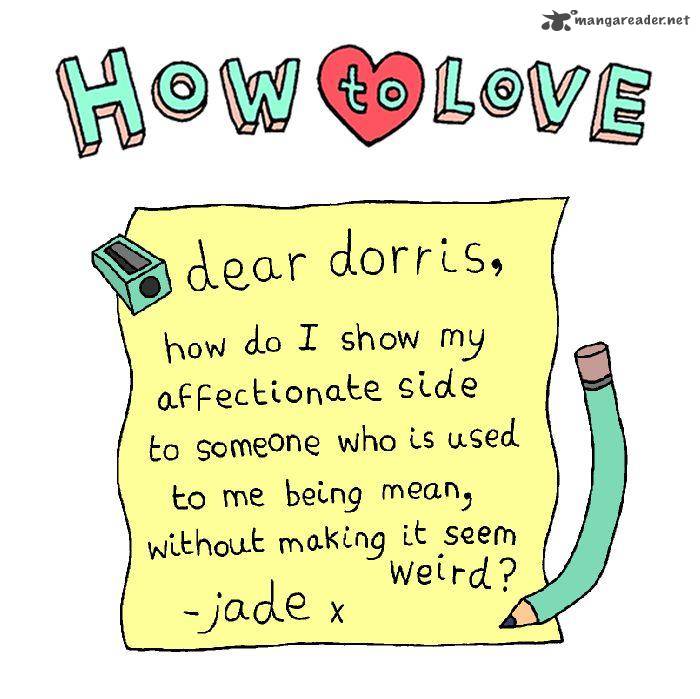 mangareader.net
HOW to LOVE
dear dorris,
how do I show my
affectionate side
to someone who is used
to me being mean,
without making it seem
weird?
-jade x